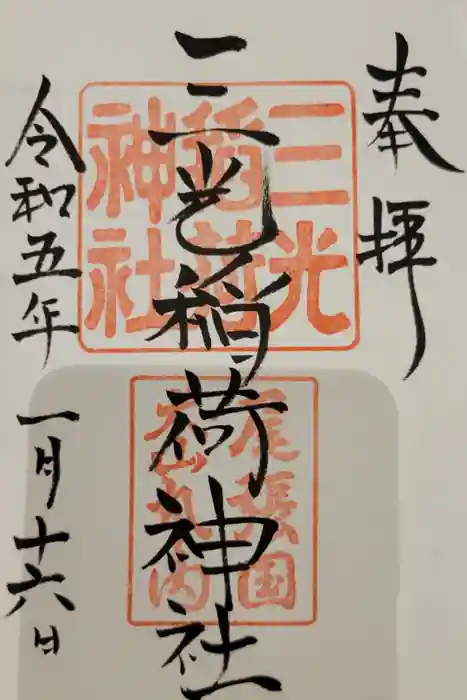 奉拝
三光稲荷神社
三光
稲荷
神社
尾張国
令和五年一月十六日